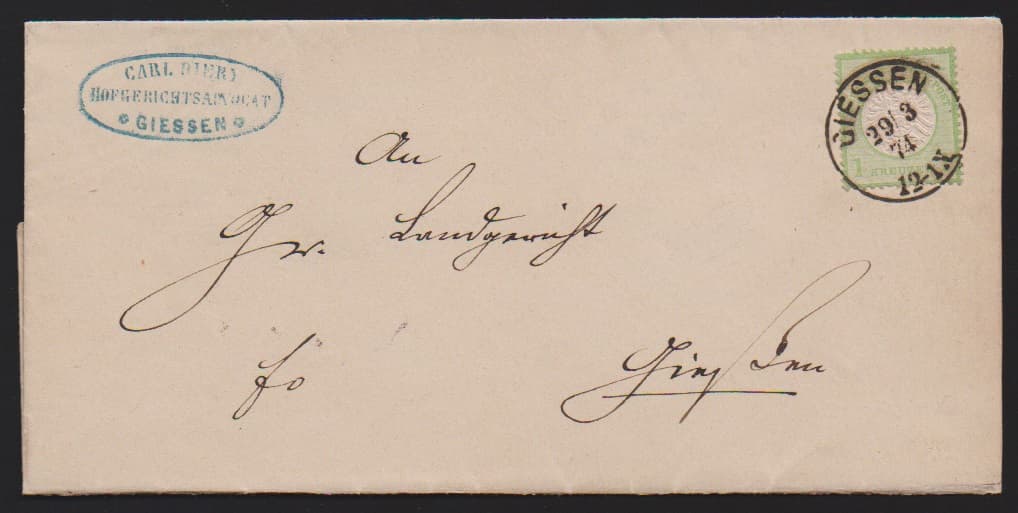 CARL DIERY
HOFGERICHTSADVOCAT
GIESSEN
GIESSEN
29/3
74
12-1N
1 KREUZER
An
Gr. Landgericht
fo
Gießen